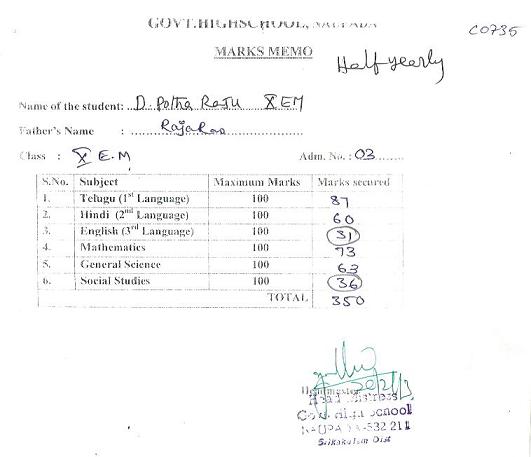 GOVT.HIGHSCHOOL, NAUPADA
C0735
MARKS MEMO
Half yearly
Name of the student: D. Potha Raju X EM
Father's Name : Raja Rao
Class : X E.M Adm. No. : 03
S.No. Subject Maximum Marks Marks secured
1. Telugu (1st Language) 100 87
2. Hindi (2nd Language) 100 60
3. English (3rd Language) 100 31
4. Mathematics 100 73
5. General Science 100 63
6. Social Studies 100 36
TOTAL 350
Headmaster
Head Mistress
Govt. High School
NAUPADA-532 211
Srikakulam Dist